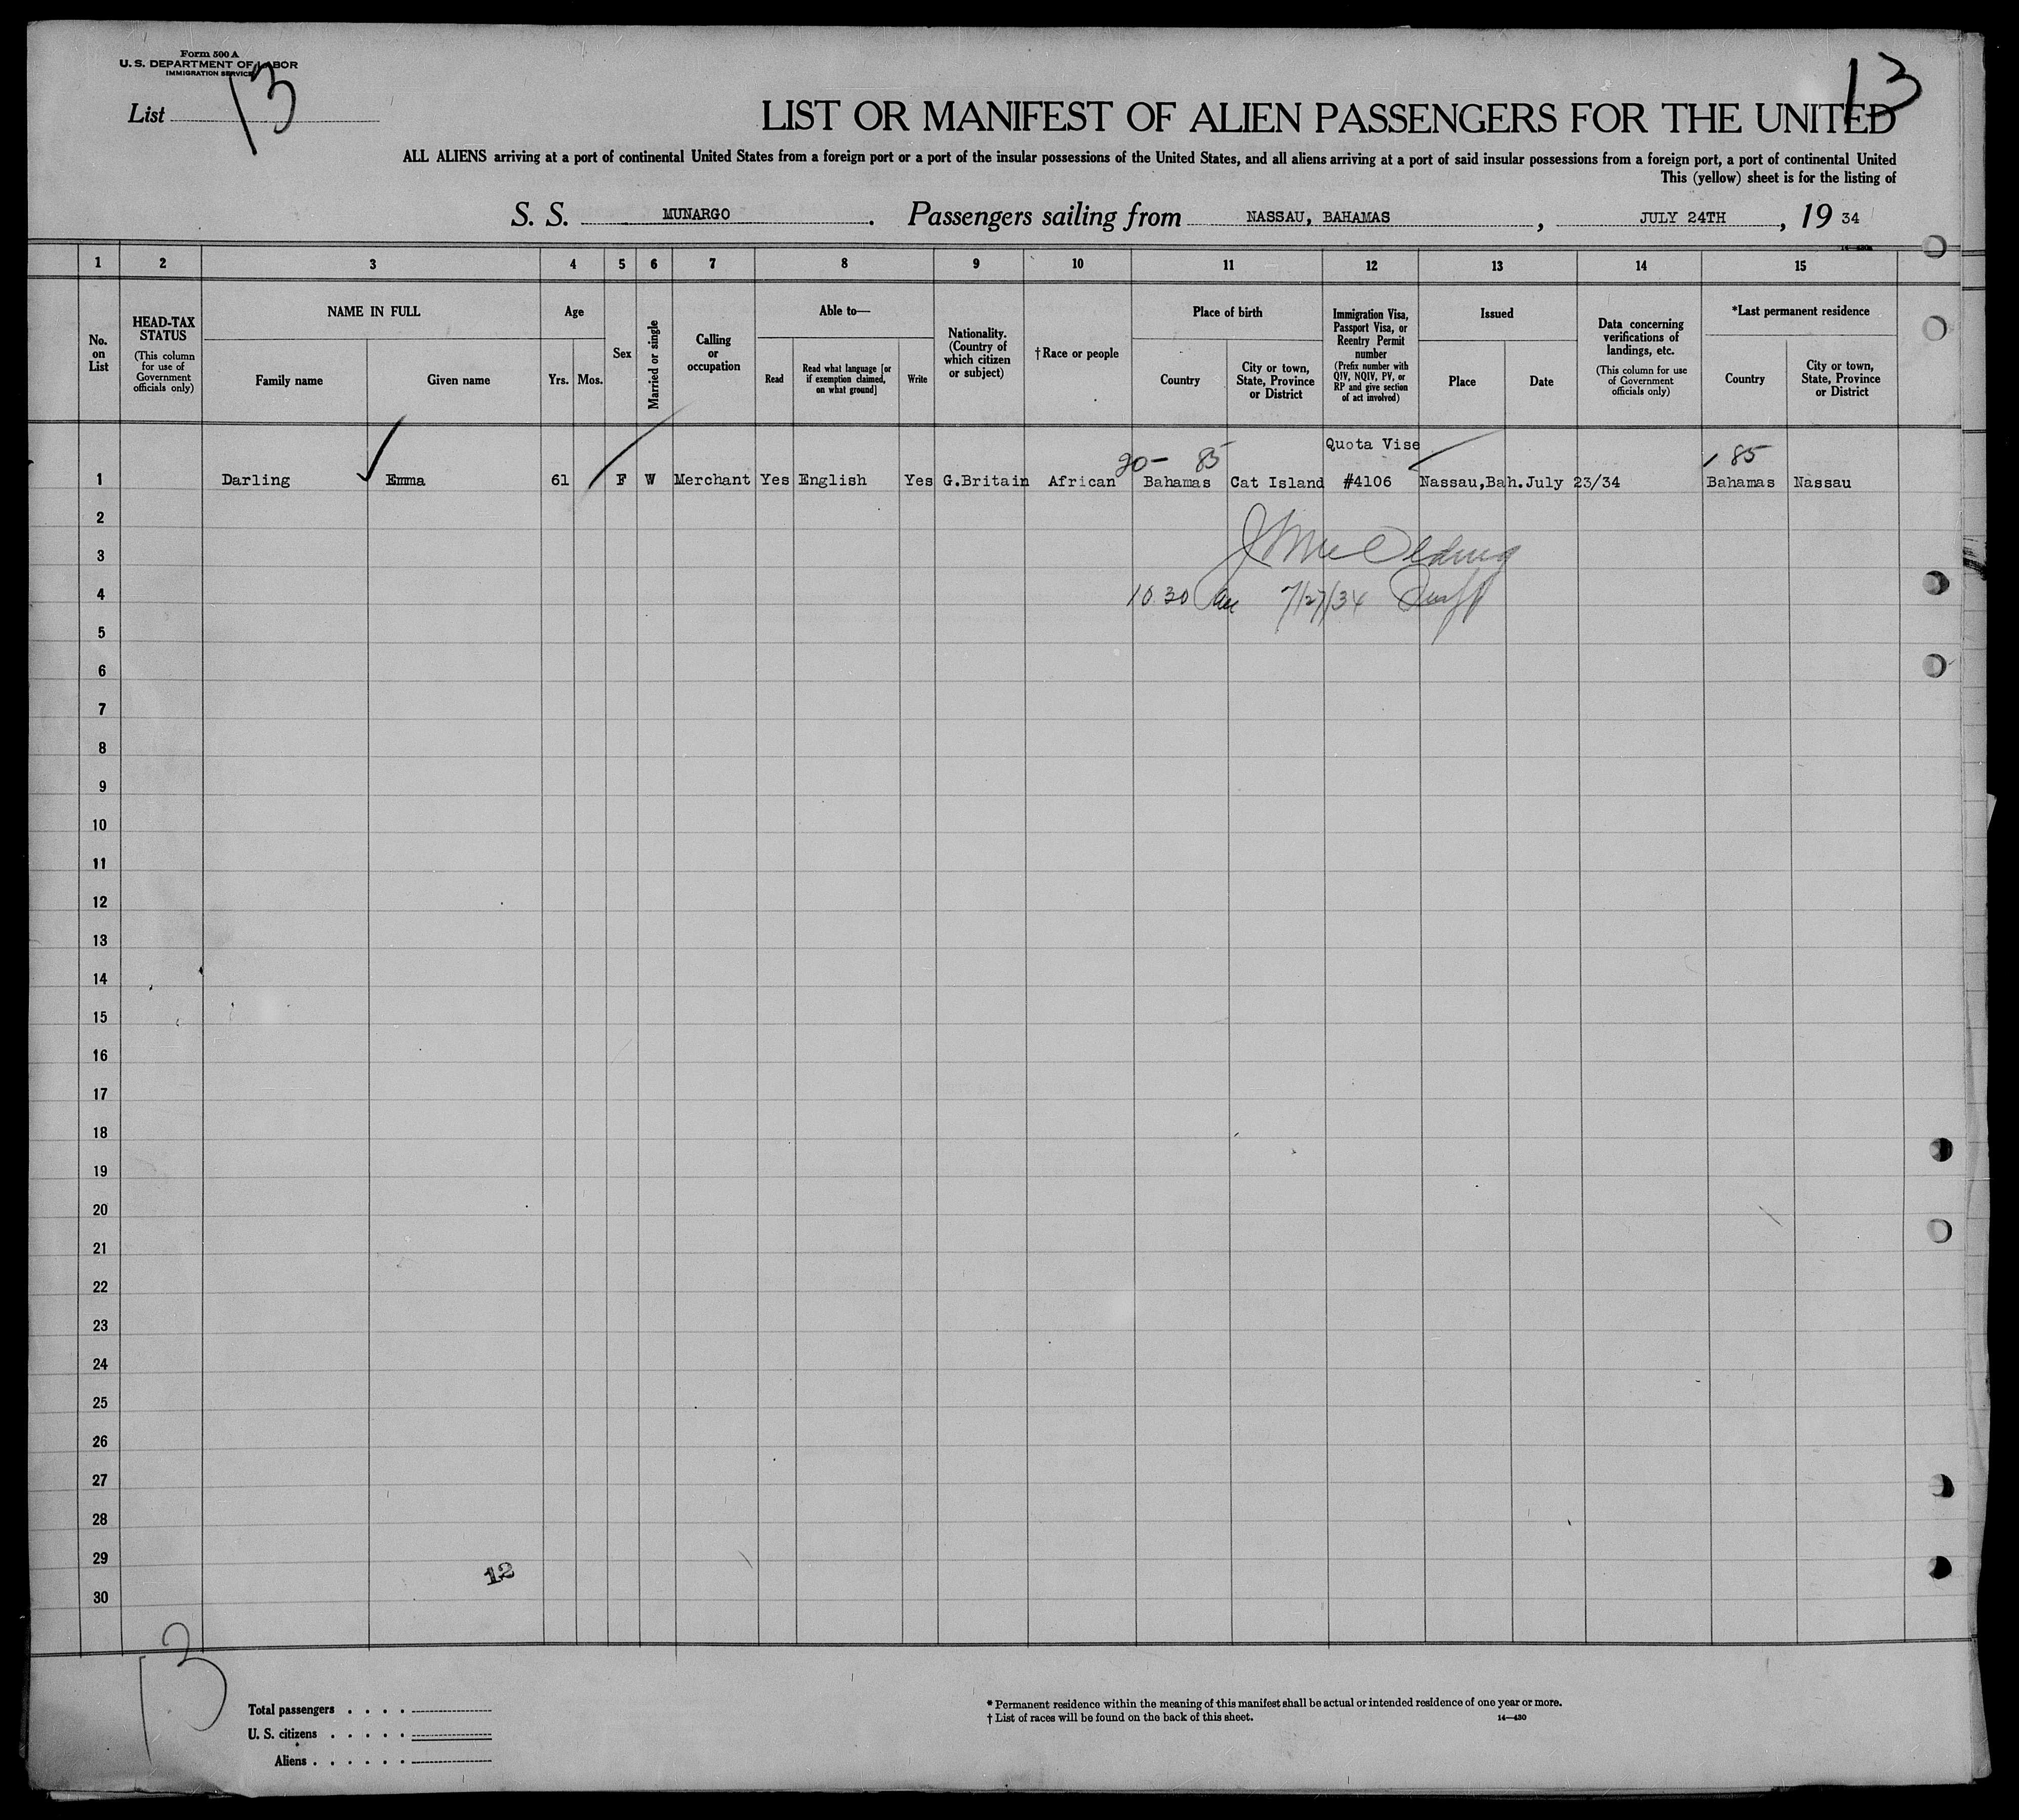 Form 500 A
U. S. DEPARTMENT OF LABOR
IMMIGRATION SERVICE
List 13
13
LIST OR MANIFEST OF ALIEN PASSENGERS FOR THE UNITED
ALL ALIENS arriving at a port of continental United States from a foreign port or a port of the insular possessions of the United States, and all aliens arriving at a port of said insular possessions from a foreign port, a port of continental United
This (yellow) sheet is for the listing of
S. S. MUNARGO. Passengers sailing from NASSAU, BAHAMAS, JULY 24TH, 1934
1 2 3 4 5 6 7 8 9 10 11 12 13 14 15
No. on List
HEAD-TAX STATUS
(This column for use of Government officials only)
NAME IN FULL
Family name
Given name
Age
Yrs.
Mos.
Sex
Married or single
Calling or occupation
Able to—
Read
Read what language [or if exemption claimed, on what ground]
Write
Nationality. (Country of which citizen or subject)
†Race or people
Place of birth
Country
City or town, State, Province or District
Immigration Visa, Passport Visa, or Reentry Permit number
(Prefix number with QIV, NQIV, PV, or RP and give section of act involved)
Issued
Place
Date
Data concerning verifications of landings, etc.
(This column for use of Government officials only)
*Last permanent residence
Country
City or town, State, Province or District
Quota Vise
20- 85
85
1 Darling Emma 61 F W Merchant Yes English Yes G.Britain African Bahamas Cat Island #4106 Nassau,Bah. July 23/34 Bahamas Nassau
2
3
4 10 30 7/27/34
5
6
7
8
9
10
11
12
13
14
15
16
17
18
19
20
21
22
23
24
25
26
27
28
29
12
30
13
Total passengers . . . .
U. S. citizens . . . . .
Aliens . . . . . .
* Permanent residence within the meaning of this manifest shall be actual or intended residence of one year or more.
† List of races will be found on the back of this sheet.
14—430